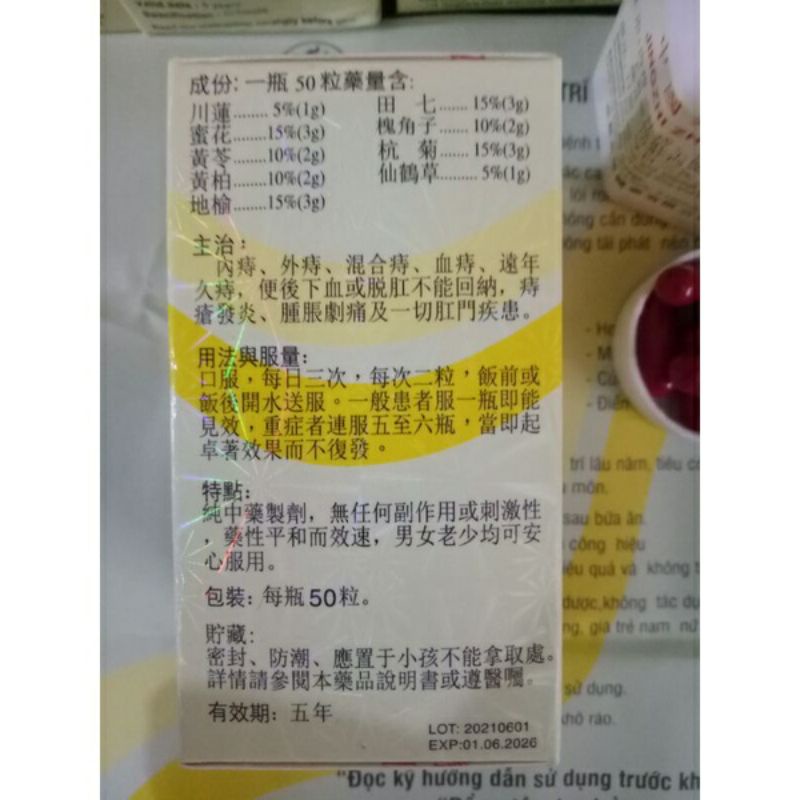 成份：一瓶 50 粒藥量含：
川蓮........ 5%(1g)
蜜花........15%(3g)
黃芩........10%(2g)
黃柏........10%(2g)
地榆........15%(3g)
田 七...... 15%(3g)
槐角子...... 10%(2g)
杭 菊...... 15%(3g)
仙鶴草......... 5%(1g)
主治：
內痔、外痔、混合痔、血痔、遠年
久痔，便後下血或脱肛不能回納，痔
瘡發炎、腫脹劇痛及一切肛門疾患。
用法與服量：
口服，每日三次，每次二粒，飯前或
飯後開水送服。一般患者服一瓶即能
見效，重症者連服五至六瓶，當即起
卓著效果而不復發。
特點：
純中藥製劑，無任何副作用或刺激性
，藥性平和而效速，男女老少均可安
心服用。
包裝：每瓶50粒。
貯藏：
密封、防潮、應置于小孩不能拿取處。
詳情請參閱本藥品說明書或遵醫囑。
有效期：五年
LOT: 20210601
EXP:01.06.2026
TRÍ
ông cần dùng
ông tái phát
- Điền
trí lâu năm, tiêu
môn.
sau bữa ăn.
công hiệu
quả và không
dược,không tác
giá trẻ nam nữ
sử dụng.
khô ráo.
"Đọc kỹ hướng dẫn sử dụng trước